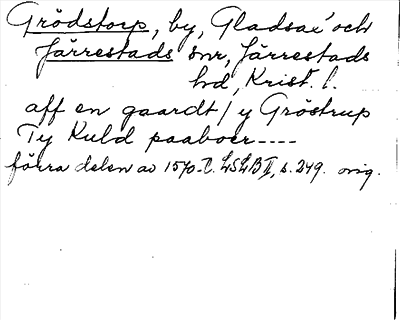 Grödstorp, by, Gladsax' och
Järrestads snr, Järrestads
hd, Krist. l.
aff en gaardt / y Gröstrup
Ty Kuld paaboer ----
förra delen av 1570-t. LSLB II, s. 249. orig.